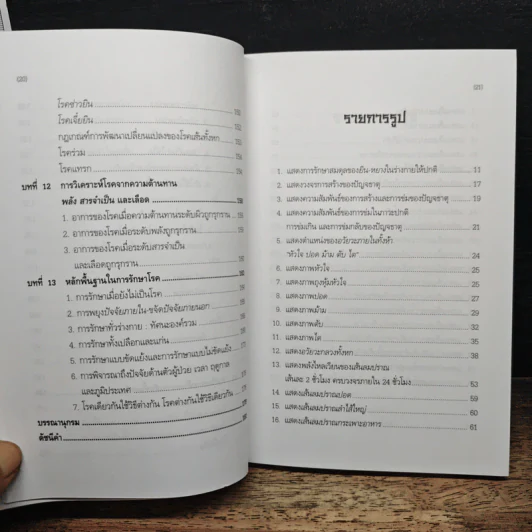 โรคซ่าวยิน
โรคเจี๋ยยิน
กฎเกณฑ์การพัฒนาเปลี่ยนแปลงของโรคเส้นทั้งหก
โรคร่วม
โรคแทรก
บทที่ 12 การวิเคราะห์โรคจากความต้านทาน
พลัง สารจำเป็น และเลือด
1. อาการของโรคเมื่อความต้านทานระดับผิวถูกรุกราน
2. อาการของโรคเมื่อระดับพลังถูกรุกราน
3. อาการของโรคเมื่อระดับสารจำเป็น
และเลือดถูกรุกราน
บทที่ 13 หลักพื้นฐานในการรักษาโรค
1. การรักษาเมื่อยังไม่เป็นโรค
2. การพยุงปัจจัยภายใน-ขจัดปัจจัยภายนอก
3. การรักษาทั่วร่างกาย : ทัศนะองค์รวม
4. การรักษาทั้งเปลือกและแก่น
5. การรักษาแบบขัดแย้งและการรักษาแบบไม่ขัดแย้ง
6. การพิจารณาถึงปัจจัยด้านตัวผู้ป่วย เวลา ฤดูกาล
และภูมิประเทศ
7. โรคเดียวกันใช้วิธีต่างกัน โรคต่างกันใช้วิธีเดียวกัน
บรรณานุกรม
ดัชนีคำ
รายการรูป
1. แสดงการรักษาสมดุลของยิน-หยางในร่างกายให้ปกติ 11
2. แสดงวงจรการสร้างของปัญจธาตุ 17
3. แสดงความสัมพันธ์ของการสร้างและการข่มของปัญจธาตุ 19
4. แสดงความสัมพันธ์ของการข่มในภาวะปกติ
การข่มเกิน และการข่มกลับของปัญจธาตุ 21
5. แสดงตำแหน่งของอวัยวะภายในทั้งห้า
"หัวใจ ปอด ม้าม ตับ ไต" 24
6. แสดงภาพหัวใจ 25
7. แสดงภาพถุงหุ้มหัวใจ 25
8. แสดงภาพปอด 27
9. แสดงภาพม้าม 29
10. แสดงภาพตับ 32
11. แสดงภาพไต 35
12. แสดงอวัยวะกลวงทั้งหก 38
13. แสดงพลังไหลเวียนของเส้นลมปราณ
เส้นละ 2 ชั่วโมง ครบวงจรภายใน 24 ชั่วโมง 53
14. แสดงเส้นลมปราณปอด 59
15. แสดงเส้นลมปราณลำไส้ใหญ่ 60
16. แสดงเส้นลมปราณกระเพาะอาหาร 61